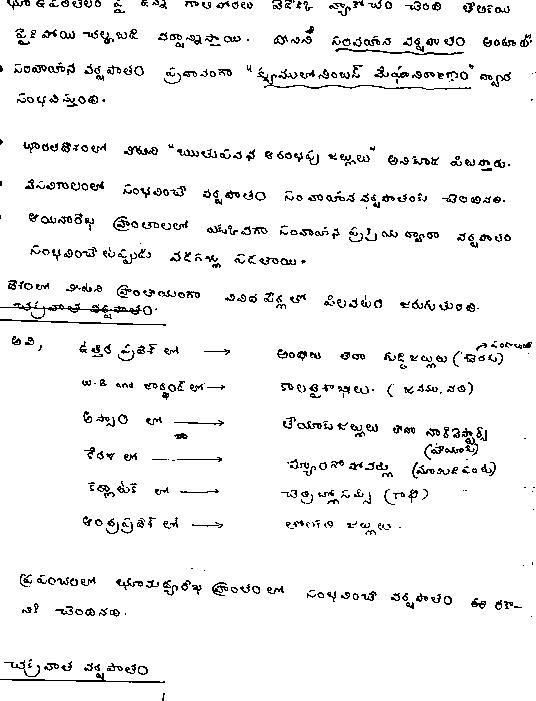 భూఉపరితలం పై ఉన్న గాలిపొరలు వేడెక్కి వ్యాకోచం చెంది తేలికయి
పైకిపోయి చల్లబడి వర్షాన్నిస్తాయి. దీనినే సంవహన వర్షపాతం అంటారు
సంవహన వర్షపాతం ప్రధానంగా "క్యుములోనింబస్ మేఘ" ద్వారా
సంభవిస్తుంది.
భారతదేశంలో వీటిని "ఋతుపవన ఆరంభపు జల్లులు" అనికూడ పిలుస్తారు.
వేసవికాలంలో సంభవించే వర్షపాతం సంవహన వర్షపాతంకు చెందినది.
ఆయనరేఖా ప్రాంతాలలో సంవహన ప్రక్రియ ద్వారా వర్షపాతం
సంభవించేటప్పుడు వడగళ్ళు పడతాయి.
దేశంలో వీటిని ప్రాంతీయంగా వివిధ పేర్లతో పిలవటం జరుగుతుంది.
చక్రవాత వర్షపాతం.
అవి,
ఉత్తర ప్రదేశ్ లో → అంధీలు లేదా జల్లులు (చెరకు)
W.B and జార్ఖండ్ లో → కాలబైశాఖీలు. (జనుము, వరి)
అస్సాం లో → టీయాకుజల్లులు లేదా నార్వెస్టార్స్
(తేయాకు)
కేరళ లో → మ్యాంగోషోవర్లు (మామిడిపండ్లు)
కర్ణాటక లో → చెర్రీబ్లోసమ్స్ (కాఫీ)
ఆంధ్రప్రదేశ్ లో → తొలకరి జల్లులు.
ప్రపంచంలో భూమధ్యరేఖా ప్రాంతం లో సంభవించే వర్షపాతం ఈ రకా-
నికి చెందినది.
చక్రవాత వర్షపాతం